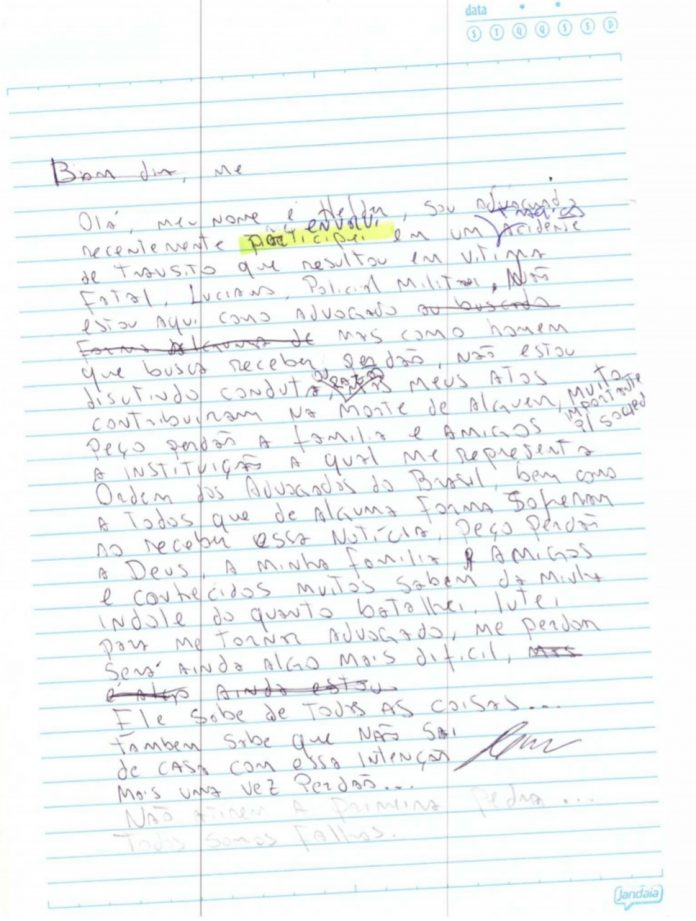 data
S T Q Q S S D
Bom dia, me
Olá, meu nome é Helder, sou advogado
recentemente participei envolvi em um trágico acidente
de transito que resultou em vitima
Fatal, Luciano, Policial Militar, Não
estou aqui como advogado ou buscado
Forma Alguma de mas como homem
que busca receber perdão, não estou
disutindo conduta, mas meus atos
contribuiram na morte de alguem, muito importante p/ socied
Peço perdão a familia e amigos
A instituição a qual me representa
Ordem dos Advogados do Brasil, bem como
a todos que de alguma forma sofreram
ao receber essa notícia, peço perdão
a Deus, a minha familia e amigos
e conhecidos muitos sabem da minha
indole do quanto batalhei, lutei
para me tornar advogado, me perdoar
será ainda algo mais dificil, mas
e algo ainda estou
Ele sabe de todas as coisas...
também sabe que não sai
de casa com essa intenção
Mais uma vez Perdão...
Não atirem a primeira pedra...
Todos somos falhos.
jandaia